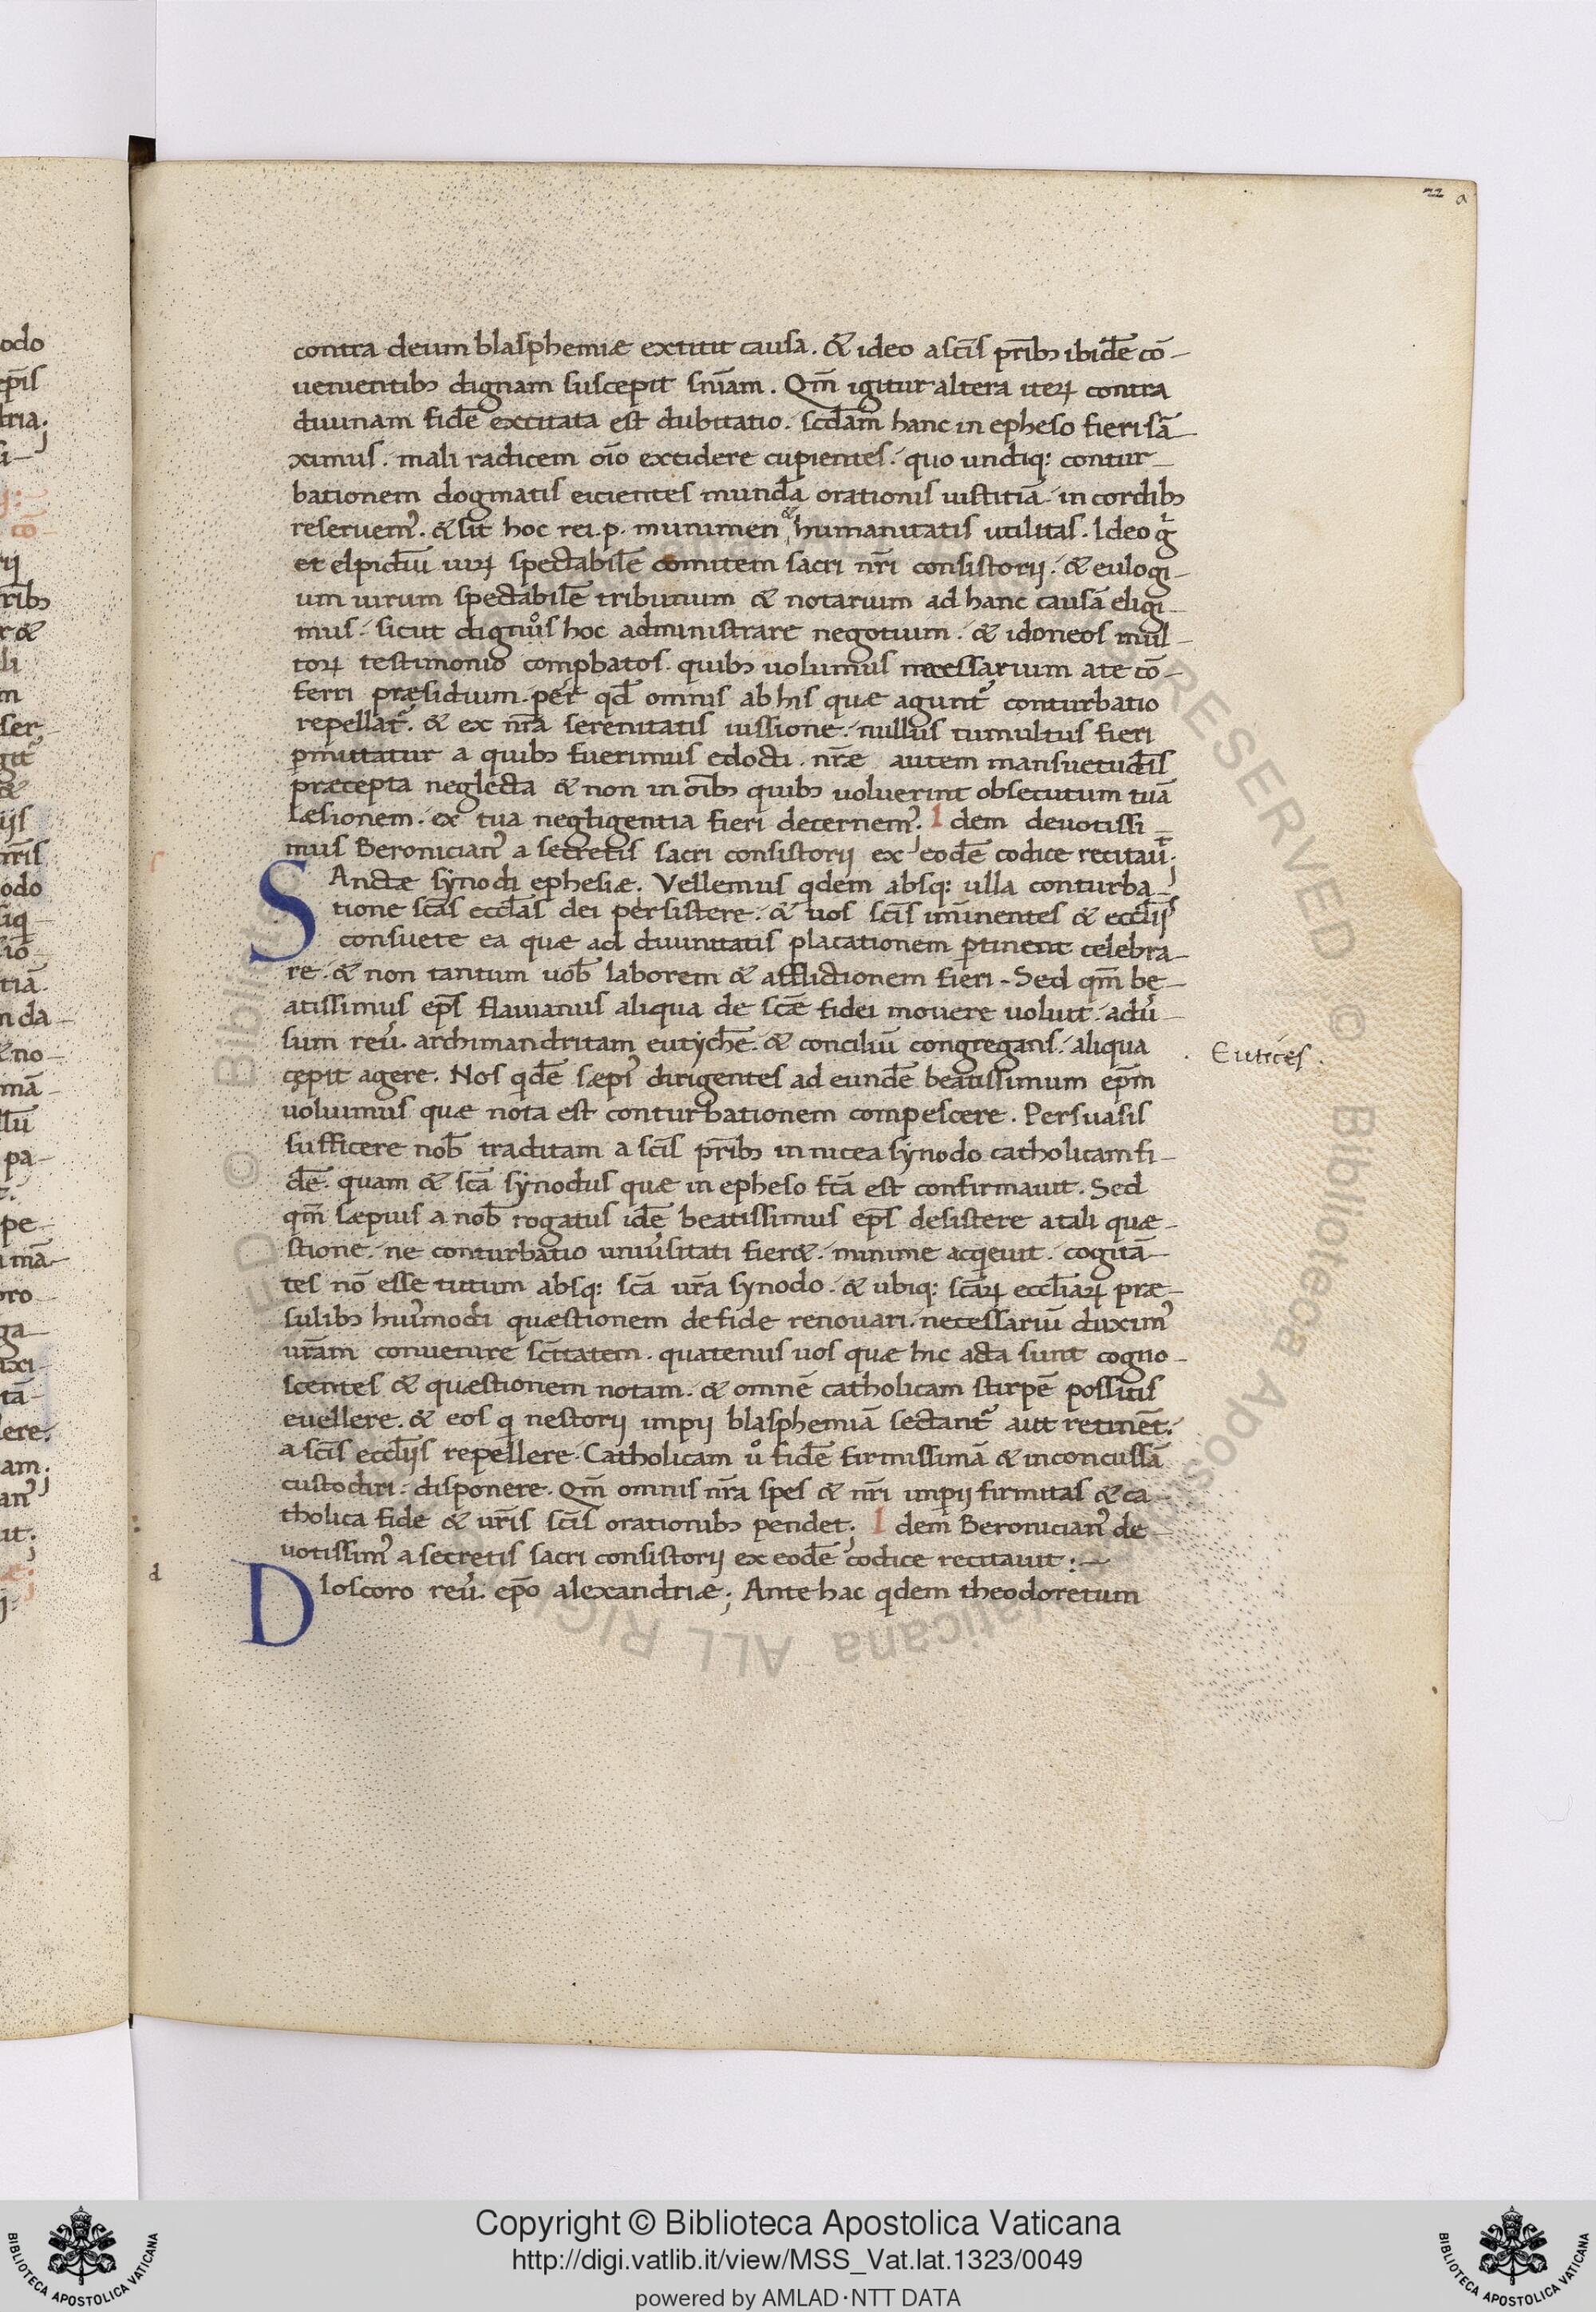 22 a
contra deum blasphemiæ extitit causa. & ideo a sc̅is pr̅ibꝫ ibidē cō-
uenientibꝫ dignam suscepit sn̅iam. Qm̅ igitur altera iteꝝ contra
diuinam fidē excitata est dubitatio. scd̅am hanc in epheso fieri sā-
ximus. mali radicem oīo excidere cupientes. quo undiq: contur-
bationem dogmatis eicientes mundā orationis iustitiā in cordibꝫ
reseruem᾽. & sit hoc rei.p. munimen & humanitatis utilitas. Ideo g̅
et elpidiū uiꝝ spectabilē comitem sacri nr̅i consistorij. & eulogi-
um uirum spectabilē tribunum & notarium ad hanc causā eligi-
mus. sicut dignos hoc administrare negotium. & idoneos mul-
toꝝ testimonio comꝓbatos. quibꝫ uolumus necessarium a te cō-
ferri præsidium. per qd̅ omnis ab his quæ agunt᾽ conturbatio
repellat᾽. & ex nr̅a serenitatis iussione. nullus tumultus fieri
ꝑmittatur a quibꝫ fuerimus edocti. nr̅æ autem mansuetud̅is
præcepta neglecta & non in oībꝫ quibꝫ uoluerint obsecutum tuā
læsionem. ex tua negligentia fieri decernem᾽. Idem deuotissi-
mus Beronician᾽ a secretis sacri consistorij ex eodē codice recitauī.
SAnctæ synodi ephesiæ. Vellemus qdem absq: ulla conturba-
tione sc̅as eccl̅as dei persistere. & uos sc̅is im̅inentes & eccl̅ijs
consuete ea quæ ad diuinitatis placationem ꝑtinent celebra-
re. & non tantum uob̅ laborem & afflictionem fieri. Sed qm̅ be-
atissimus ep̅s flauianus aliqua de sc̅æ fidei mouere uoluit. adu᾽-
sum reu᾽. archimandritam eutychē. & conciliū congregans. aliqua
cepit agere. Nos qidē sæpi᾽ dirigentes ad eundē beatissimum ep̅m
uoluimus quæ nota est conturbationem compescere. Persuasis
sufficere nob̅ traditam a sc̅is pr̅ibꝫ in nicea synodo catholicam fi-
dē. quam & sc̅a synodus quæ in epheso fc̅a est confirmauit. Sed
qm̅ sæpius a nob̅ rogatus idē beatissimus ep̅s desistere a tali quæ-
stione. ne conturbatio uniu᾽sitati fier&. minime acqeuit. cogitā-
tes nō esse tutum absq: sc̅a ur̅a synodo. & ubiq: sc̅aꝝ eccl̅iaꝝ præ-
sulibꝫ hui᾽modi quæstionem de fide renouari. necessariū duxim᾽
ur̅am conuenire sc̅itatem. quatenus uos quæ hic acta sunt cogno-
scentes & quæstionem notam. & omnē catholicam stirpē possitis
euellere. & eos q nestorij impij blasphemiā sectant᾽ aut retinēt.
a sc̅is eccl̅ijs repellere. Catholicam ů fidē firmissimā & inconcussā
custodiri. disponere. Qm̅ omnis nr̅a spes & nr̅i impij firmitas & ca-
tholica fide & ur̅is sc̅is orationibꝫ pendet; Idem Beronician᾽ de-
uotissim᾽ a secretis sacri consistorij ex eodē codice recitauit:—
DIoscoro reu᾽. ep̅o alexandriæ; Ante hac qdem theodoretum
d
. Eutices.
Copyright © Biblioteca Apostolica Vaticana
http://digi.vatlib.it/view/MSS_Vat.lat.1323/0049
powered by AMLAD·NTT DATA